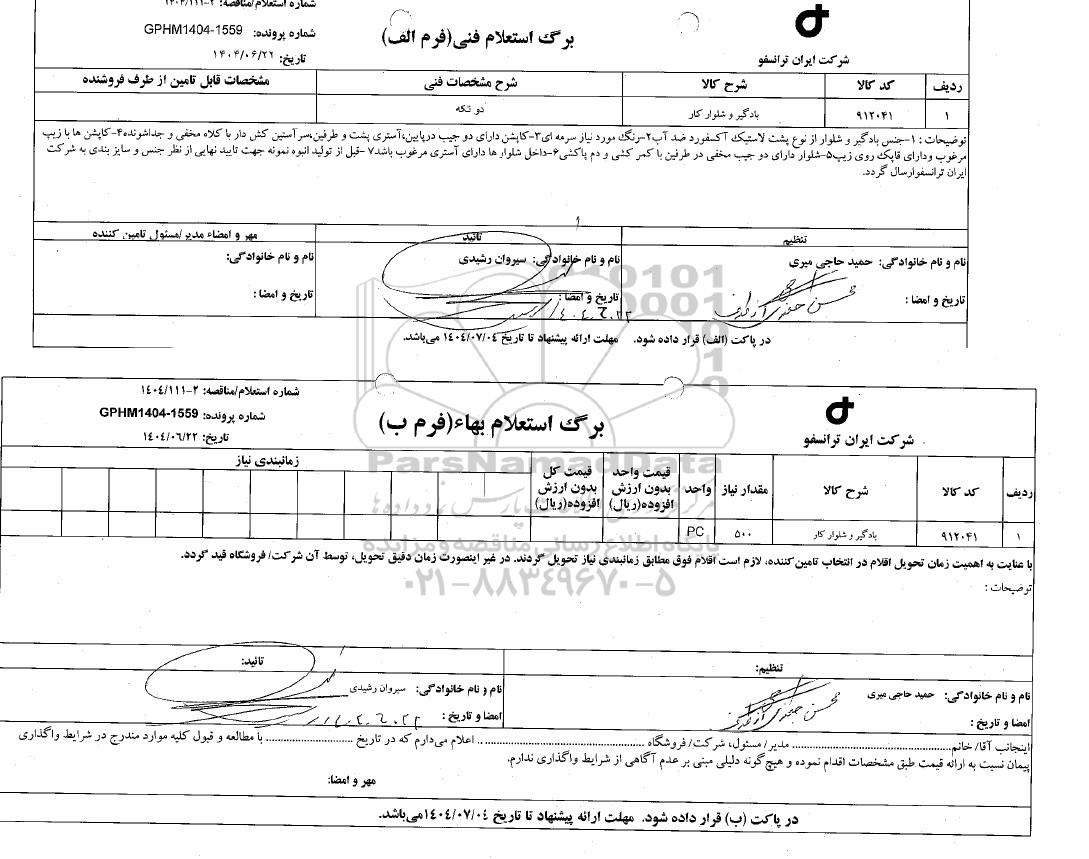 شماره استعلام/مناقصه: ۲-۱۴۰۴/۱۱۱
برگ استعلام فنی(فرم الف)
شماره پرونده: GPHM1404-1559
تاریخ: ۱۴۰۴/۰۶/۲۲
شرکت ایران ترانسفو
ردیف کد کالا شرح کالا شرح مشخصات فنی مشخصات قابل تامین از طرف فروشنده
۱ ۹۱۲۰۴۱ بادگیر و شلوار کار دو تکه
توضیحات : ۱-جنس بادگیر و شلوار از نوع پشت لاستیک آکسفورد ضد آب۲-رنگ مورد نیاز سرمه ای۳-کاپشن دارای دو جیب درپایین،آستری پشت و طرفین،سرآستین کش دار با کلاه مخفی و جداشونده۴-کاپشن ها با زیپ
مرغوب ودارای قاپک روی زیپ۵-شلوار دارای دو جیب مخفی در طرفین با کمر کشی و دم پاکشی۶-داخل شلوار ها دارای آستری مرغوب باشد۷-قبل از تولید انبوه نمونه جهت تایید نهایی از نظر جنس و سایز بندی به شرکت
ایران ترانسفوارسال گردد.
تنظیم تائید مهر و امضاء مدیر/مسئول تامین کننده
نام و نام خانوادگی: حمید حاجی میری نام و نام خانوادگی: سیروان رشیدی نام و نام خانوادگی:
تاریخ و امضا : تاریخ و امضا : تاریخ و امضا :
در پاکت (الف) قرار داده شود. مهلت ارائه پیشنهاد تا تاریخ ۱۴۰۴/۰۷/۰۴ می‌باشد.
شماره استعلام/مناقصه: ۲-۱۴۰۴/۱۱۱
برگ استعلام بهاء(فرم ب)
شماره پرونده: GPHM1404-1559
تاریخ: ۱۴۰۴/۰۶/۲۲
شرکت ایران ترانسفو
ردیف کد کالا شرح کالا مقدار نیاز واحد قیمت واحد بدون ارزش افزوده(ریال) قیمت کل بدون ارزش افزوده(ریال) زمانبندی نیاز
۱ ۹۱۲۰۴۱ بادگیر و شلوار کار ۵۰۰ PC
با عنایت به اهمیت زمان تحویل اقلام در انتخاب تامین‌کننده، لازم است اقلام فوق مطابق زمانبندی نیاز تحویل گردند. در غیر اینصورت زمان دقیق تحویل، توسط آن شرکت/ فروشگاه قید گردد.
توضیحات :
تنظیم: تائید:
نام و نام خانوادگی: حمید حاجی میری نام و نام خانوادگی: سیروان رشیدی
امضا و تاریخ : امضا و تاریخ :
اینجانب آقا/ خانم........ مدیر/ مسئول، شرکت/ فروشگاه ........ اعلام می‌دارم که در تاریخ ........ با مطالعه و قبول کلیه موارد مندرج در شرایط واگذاری
پیمان نسبت به ارائه قیمت طبق مشخصات اقدام نموده و هیچ‌گونه دلیلی مبنی بر عدم آگاهی از شرایط واگذاری ندارم.
مهر و امضا:
در پاکت (ب) قرار داده شود. مهلت ارائه پیشنهاد تا تاریخ ۱۴۰۴/۰۷/۰۴می‌باشد.
ParsNamadData
پایگاه اطلاع رسانی مناقصه و مزایده
۰۲۱-۸۸۳۴۹۶۷۰-۵